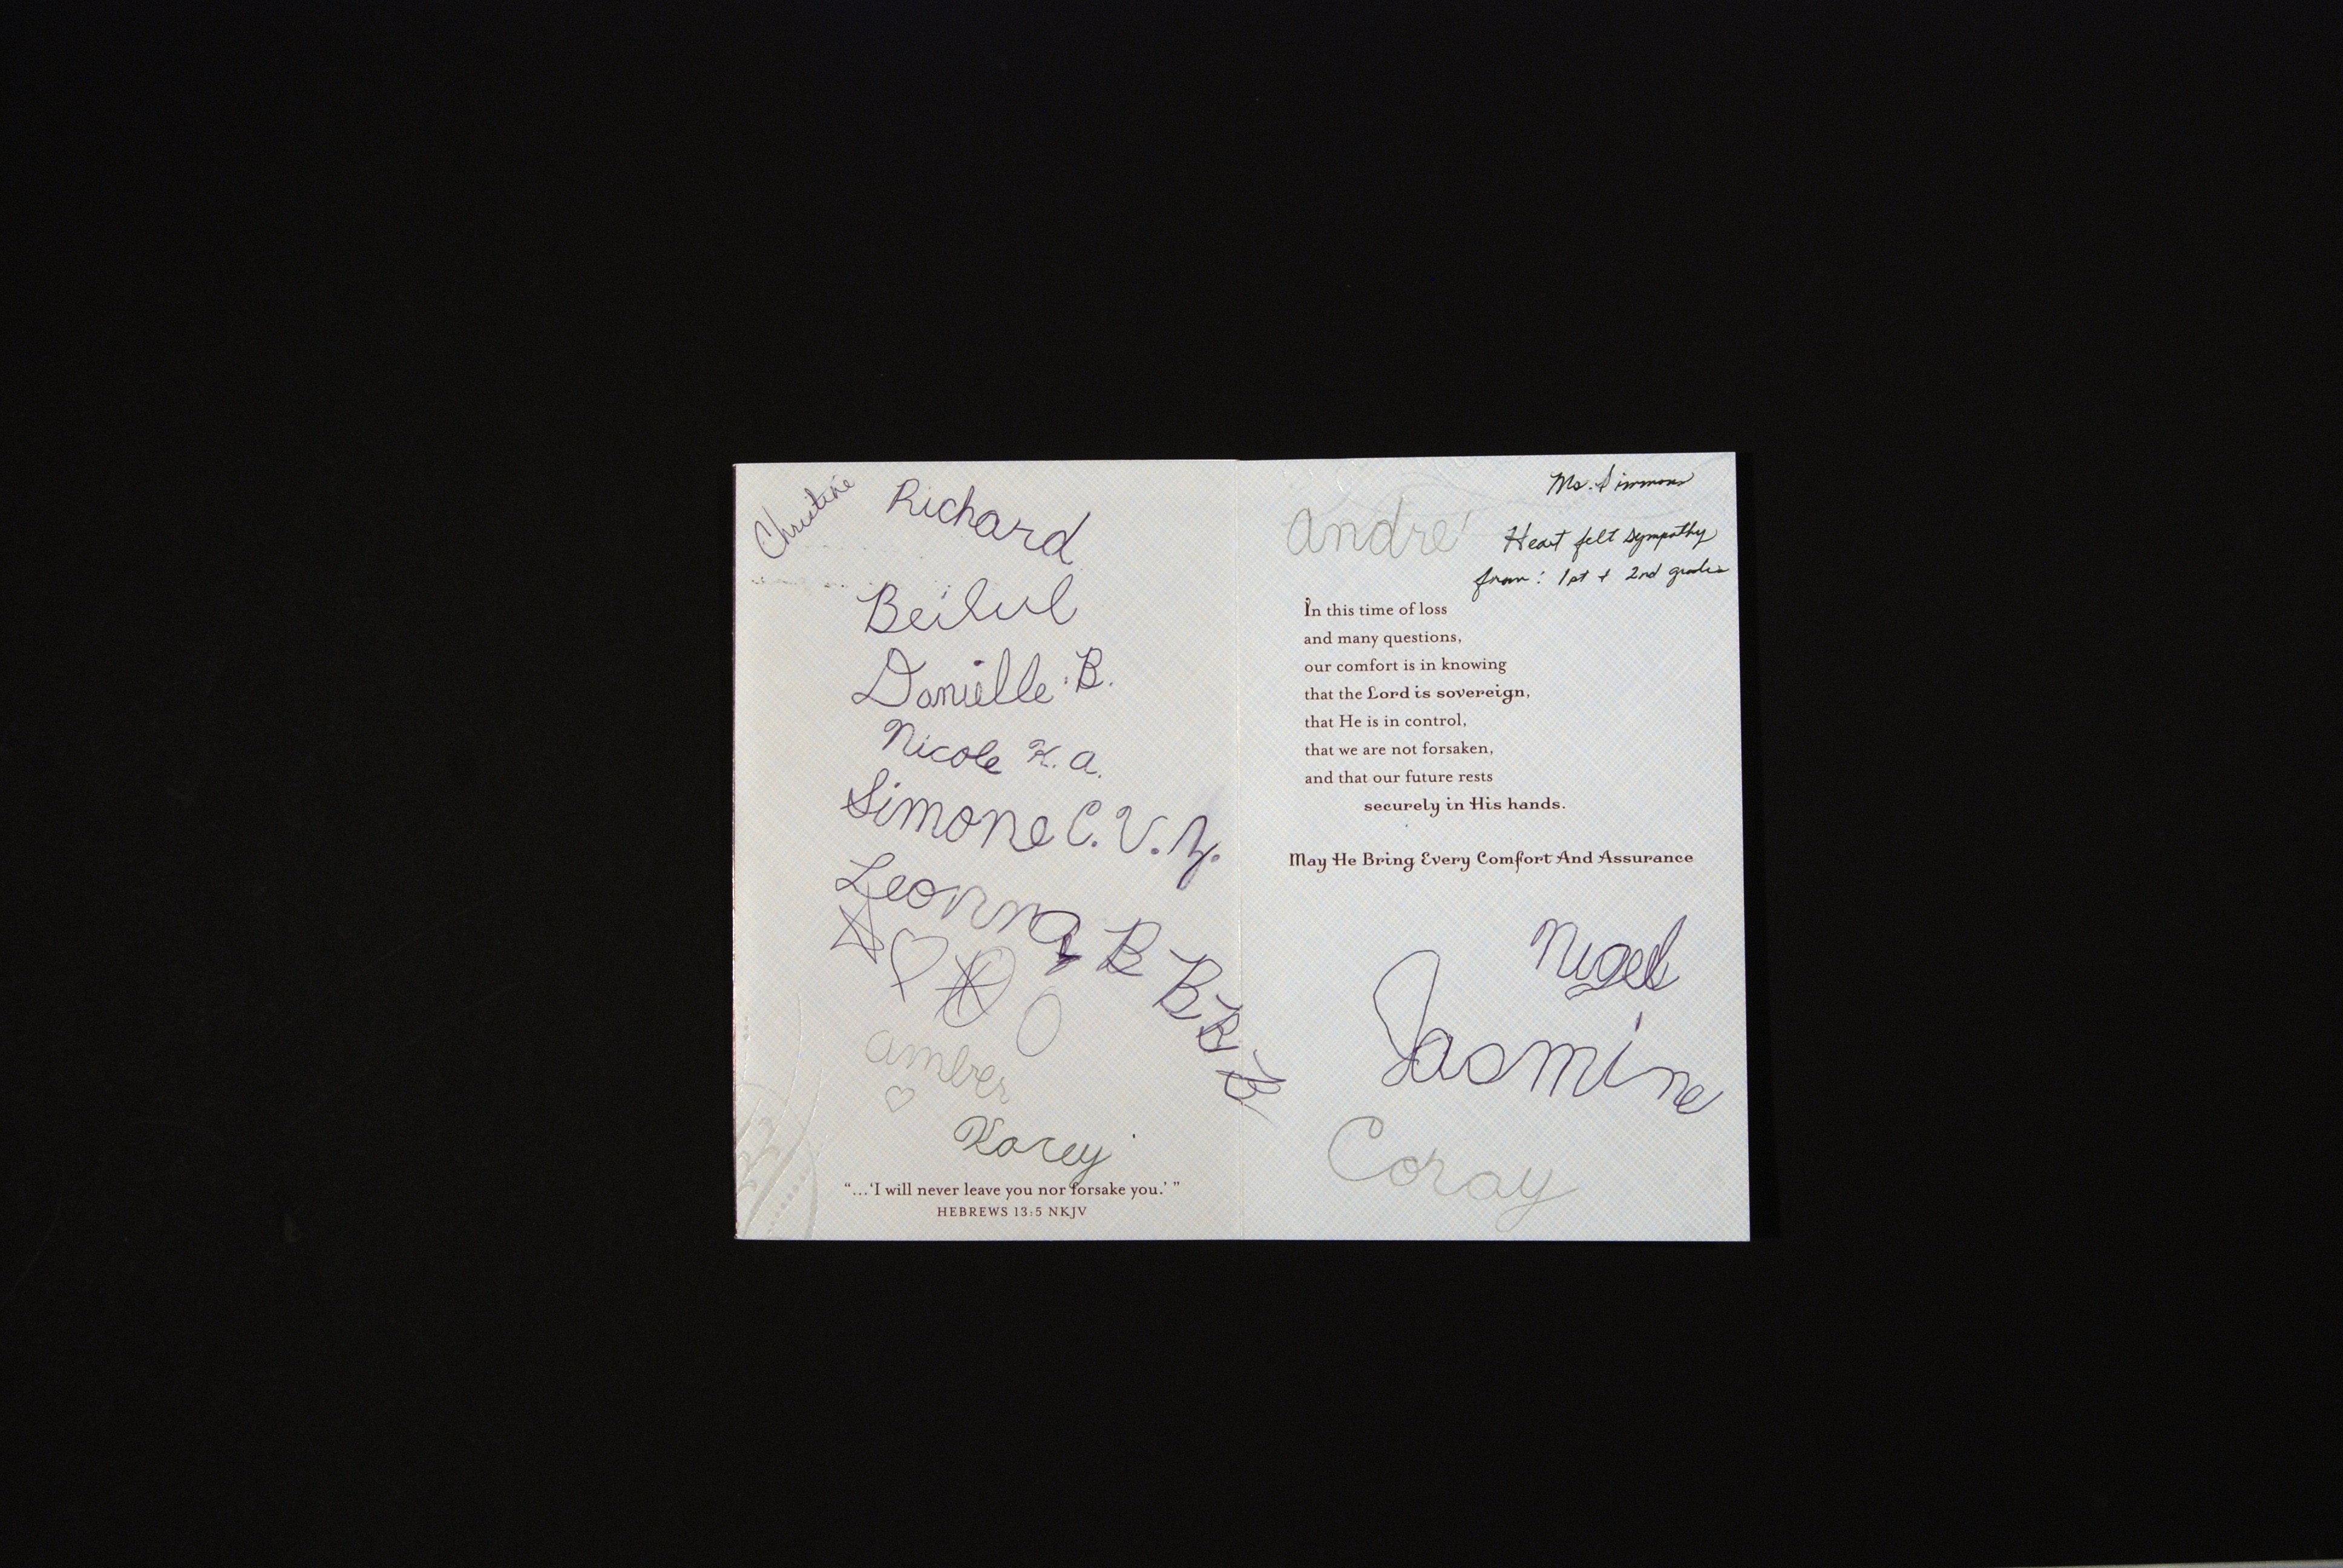 Christine
Richard
Beilul
Danielle B.
Nicole K. A.
Simone C. V. Y.
Leonna B B B B
amber
Korey
“...‘I will never leave you nor forsake you.’ ”
HEBREWS 13:5 NKJV
Ms. Simmons
andre'
Heart felt sympathy
from: 1st + 2nd grades
In this time of loss
and many questions,
our comfort is in knowing
that the Lord is sovereign,
that He is in control,
that we are not forsaken,
and that our future rests
securely in His hands.
May He Bring Every Comfort And Assurance
Nigel
Jasmine
Coray